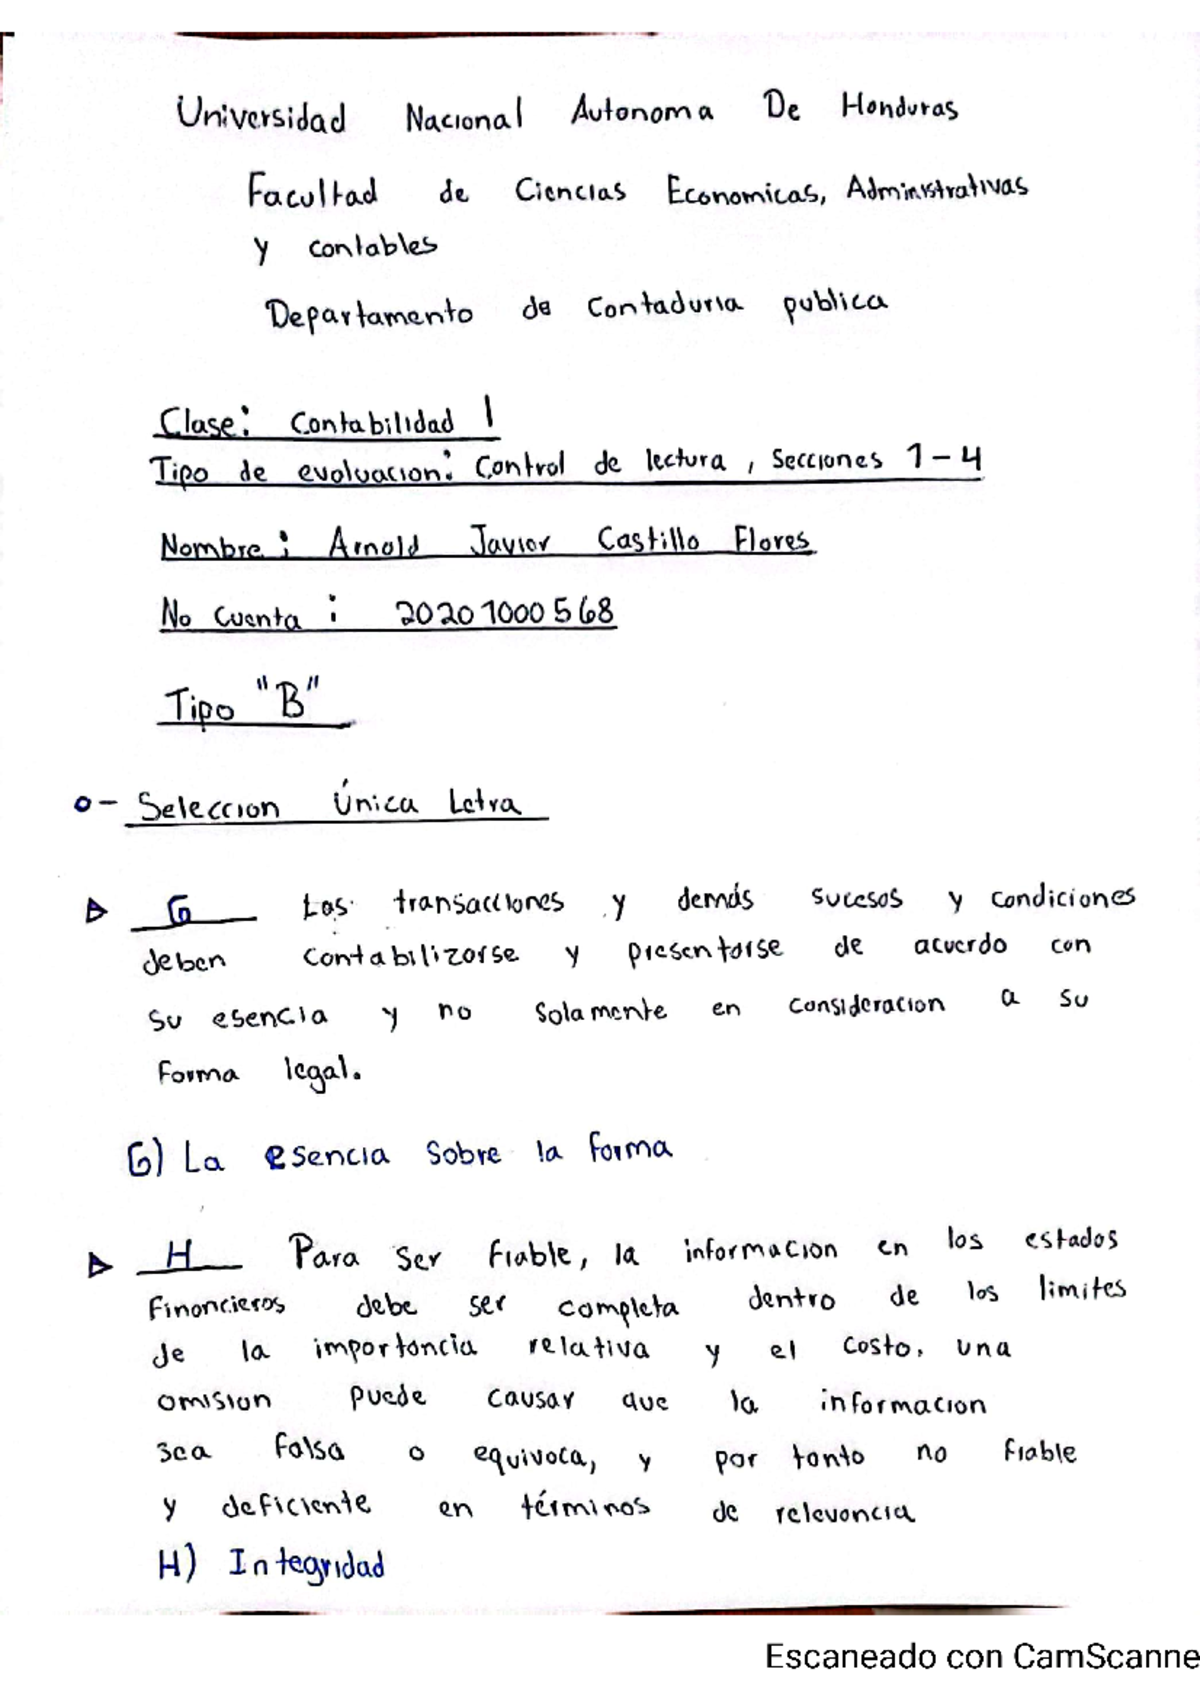 Universidad Nacional Autonoma De Honduras
Facultad de Ciencias Economicas, Administrativas
y contables
Departamento de Contaduria publica
Clase: Contabilidad I
Tipo de evaluacion: Control de lectura, Secciones 1-4
Nombre: Arnold Javier Castillo Flores
No Cuenta: 20201000568
Tipo "B"
o- Seleccion Única Letra
G Las transacciones y demás sucesos y condiciones
deben contabilizarse y presentarse de acuerdo con
su esencia y no solamente en consideracion a su
forma legal.
G) La esencia sobre la forma
H Para ser fiable, la informacion en los estados
Financieros debe ser completa dentro de los limites
de la importancia relativa y el costo, una
omision puede causar que la informacion
sea falsa o equivoca, y por tanto no fiable
y deficiente en términos de relevancia
H) Integridad
Escaneado con CamScanne